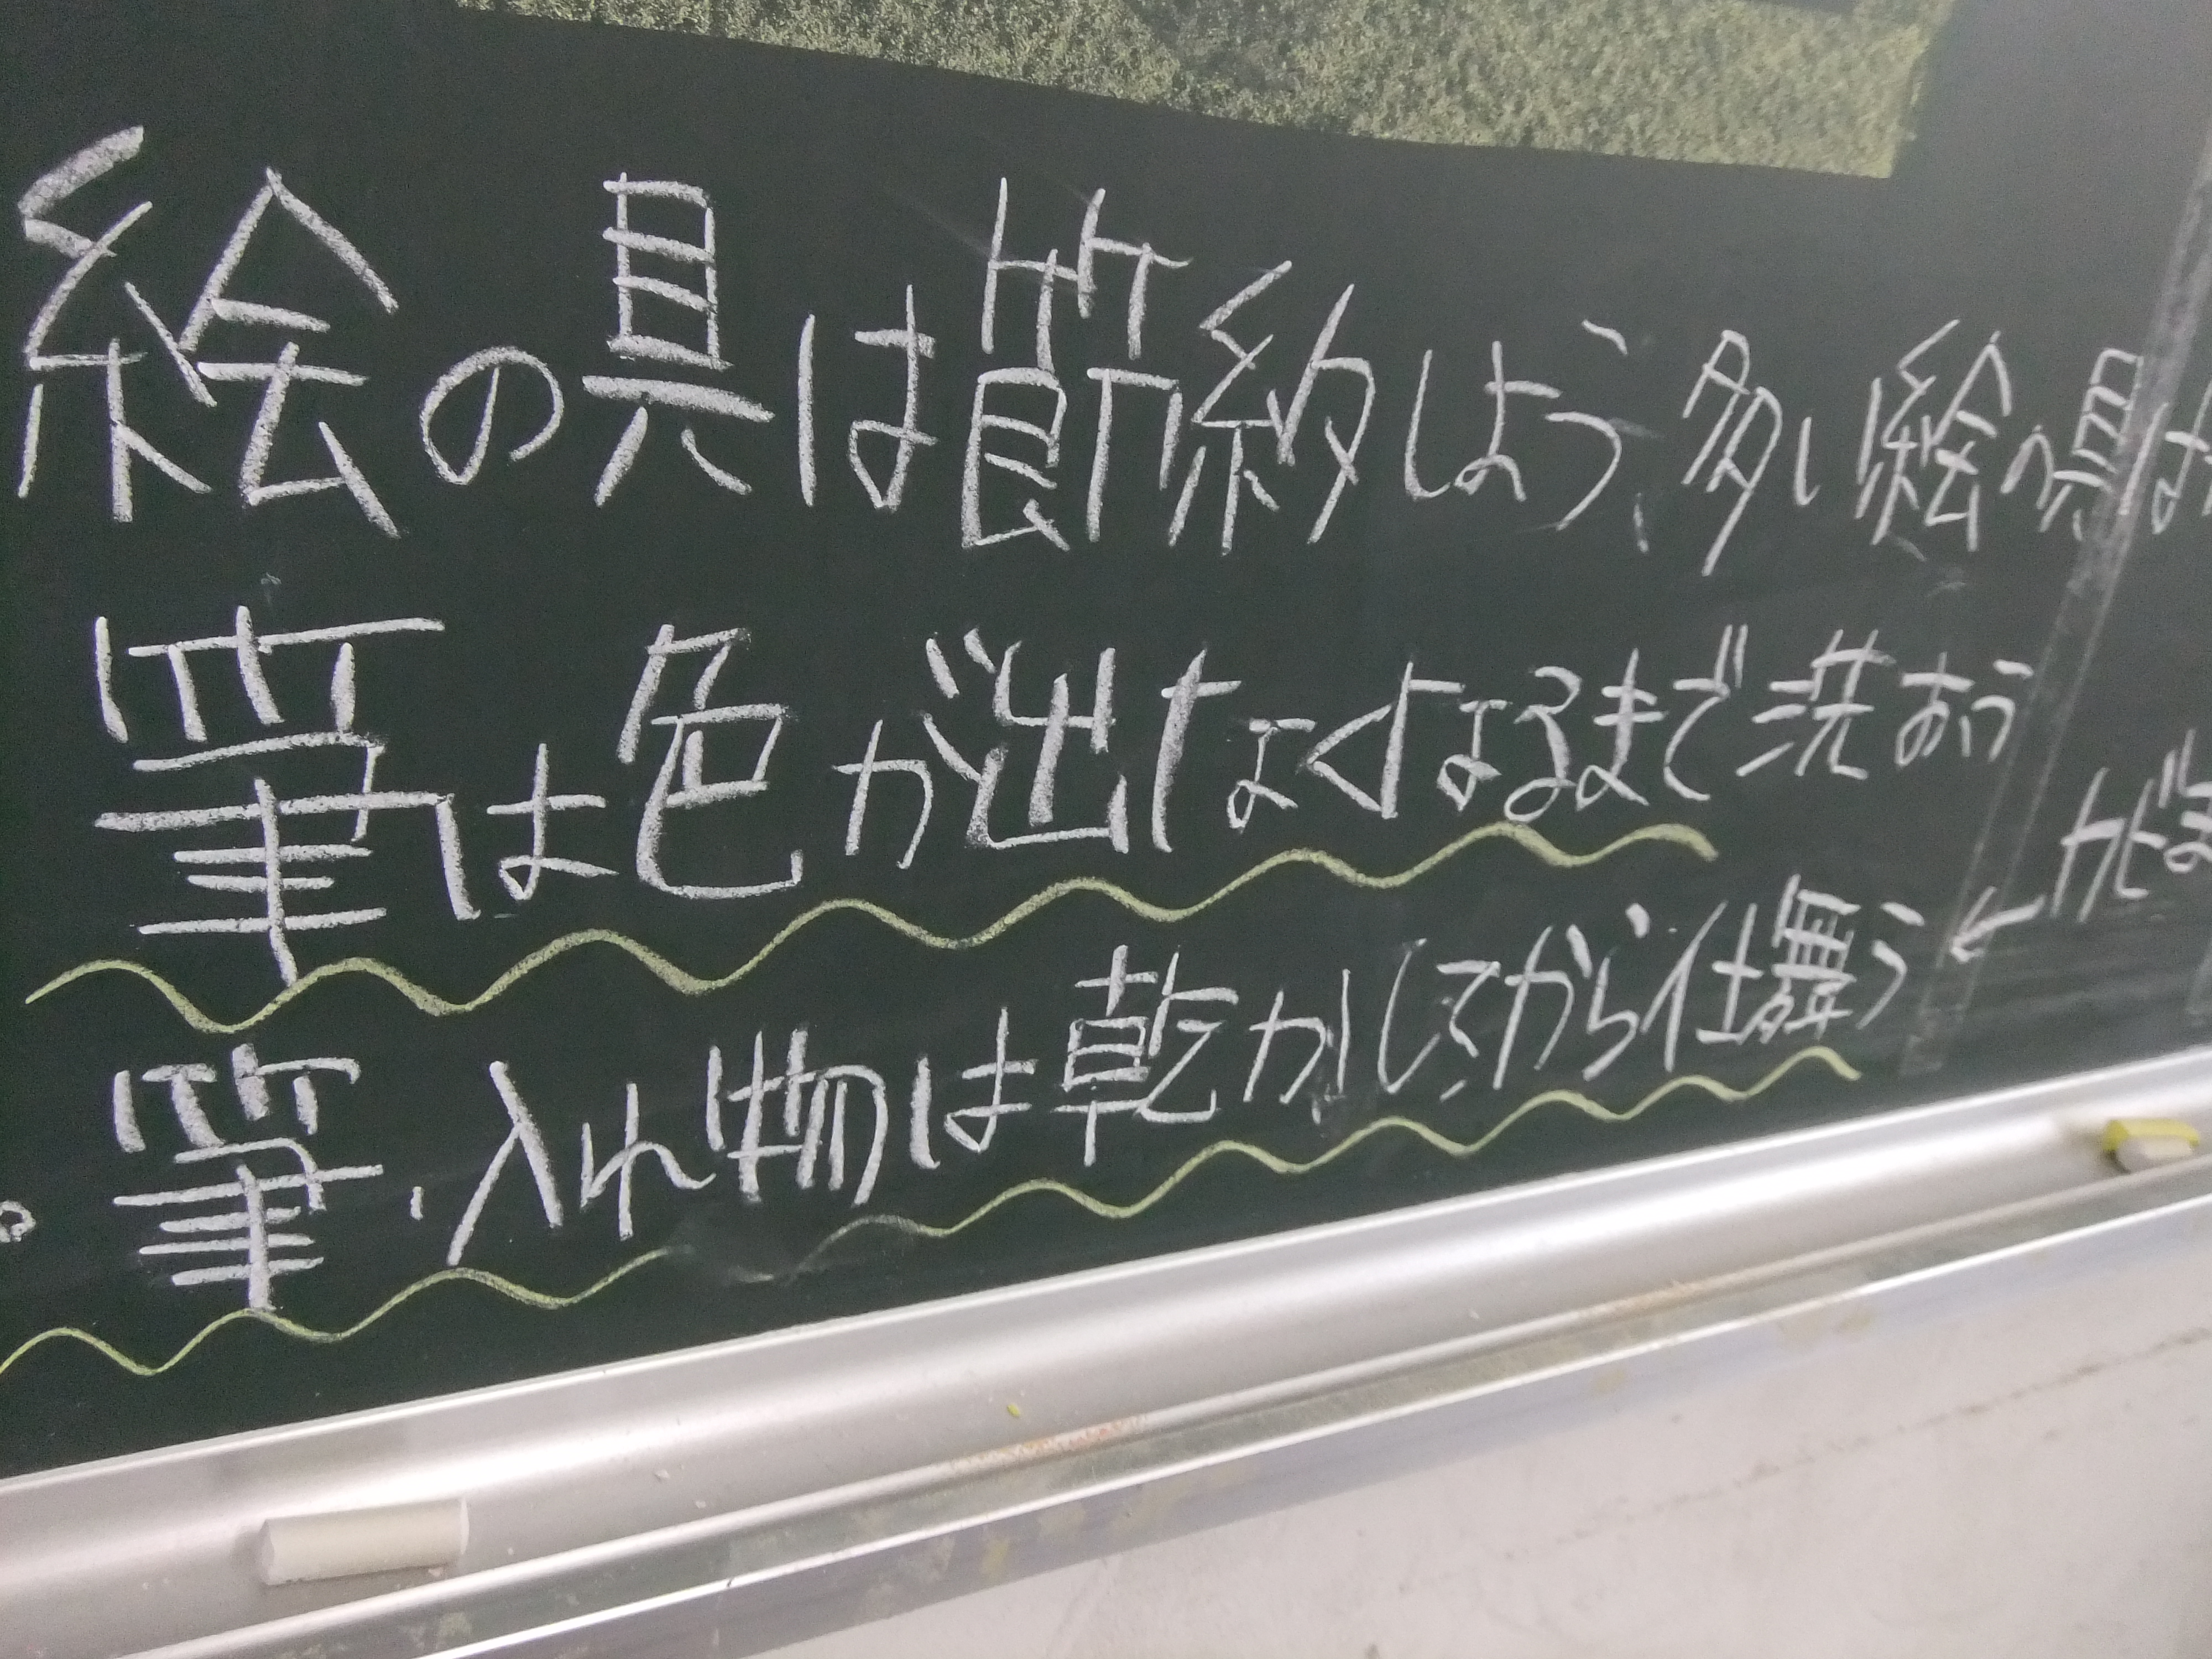 絵の具は節約しよう、多い絵の具は
筆は色が出なくなるまで洗おう
。筆・入れ物は乾かしてから仕舞う ← カビ